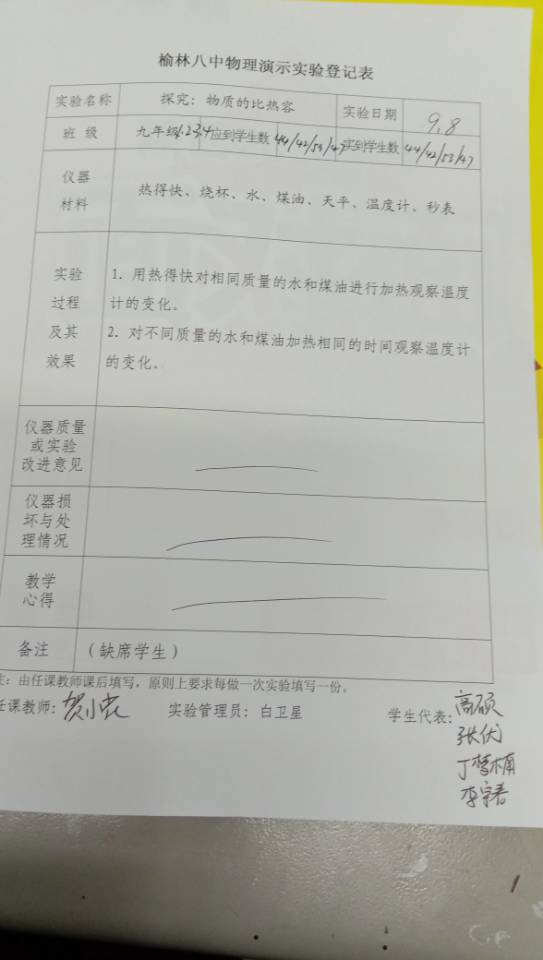 榆林八中物理演示实验登记表
实验名称 探究：物质的比热容 实验日期 9.8
班 级 九年级1.2.3.4 应到学生数 44/42/54/47 实到学生数 44/42/53/47
仪器
材料
热得快、烧杯、水、煤油、天平、温度计、秒表
实验
过程
及其
效果
1. 用热得快对相同质量的水和煤油进行加热观察温度
计的变化。
2. 对不同质量的水和煤油加热相同的时间观察温度计
的变化。
仪器质量
或实验
改进意见
仪器损
坏与处
理情况
教学
心得
备注 （缺席学生）
注：由任课教师课后填写，原则上要求每做一次实验填写一份。
任课教师： 实验管理员：白卫星 学生代表：高硕
张优
丁梦楠